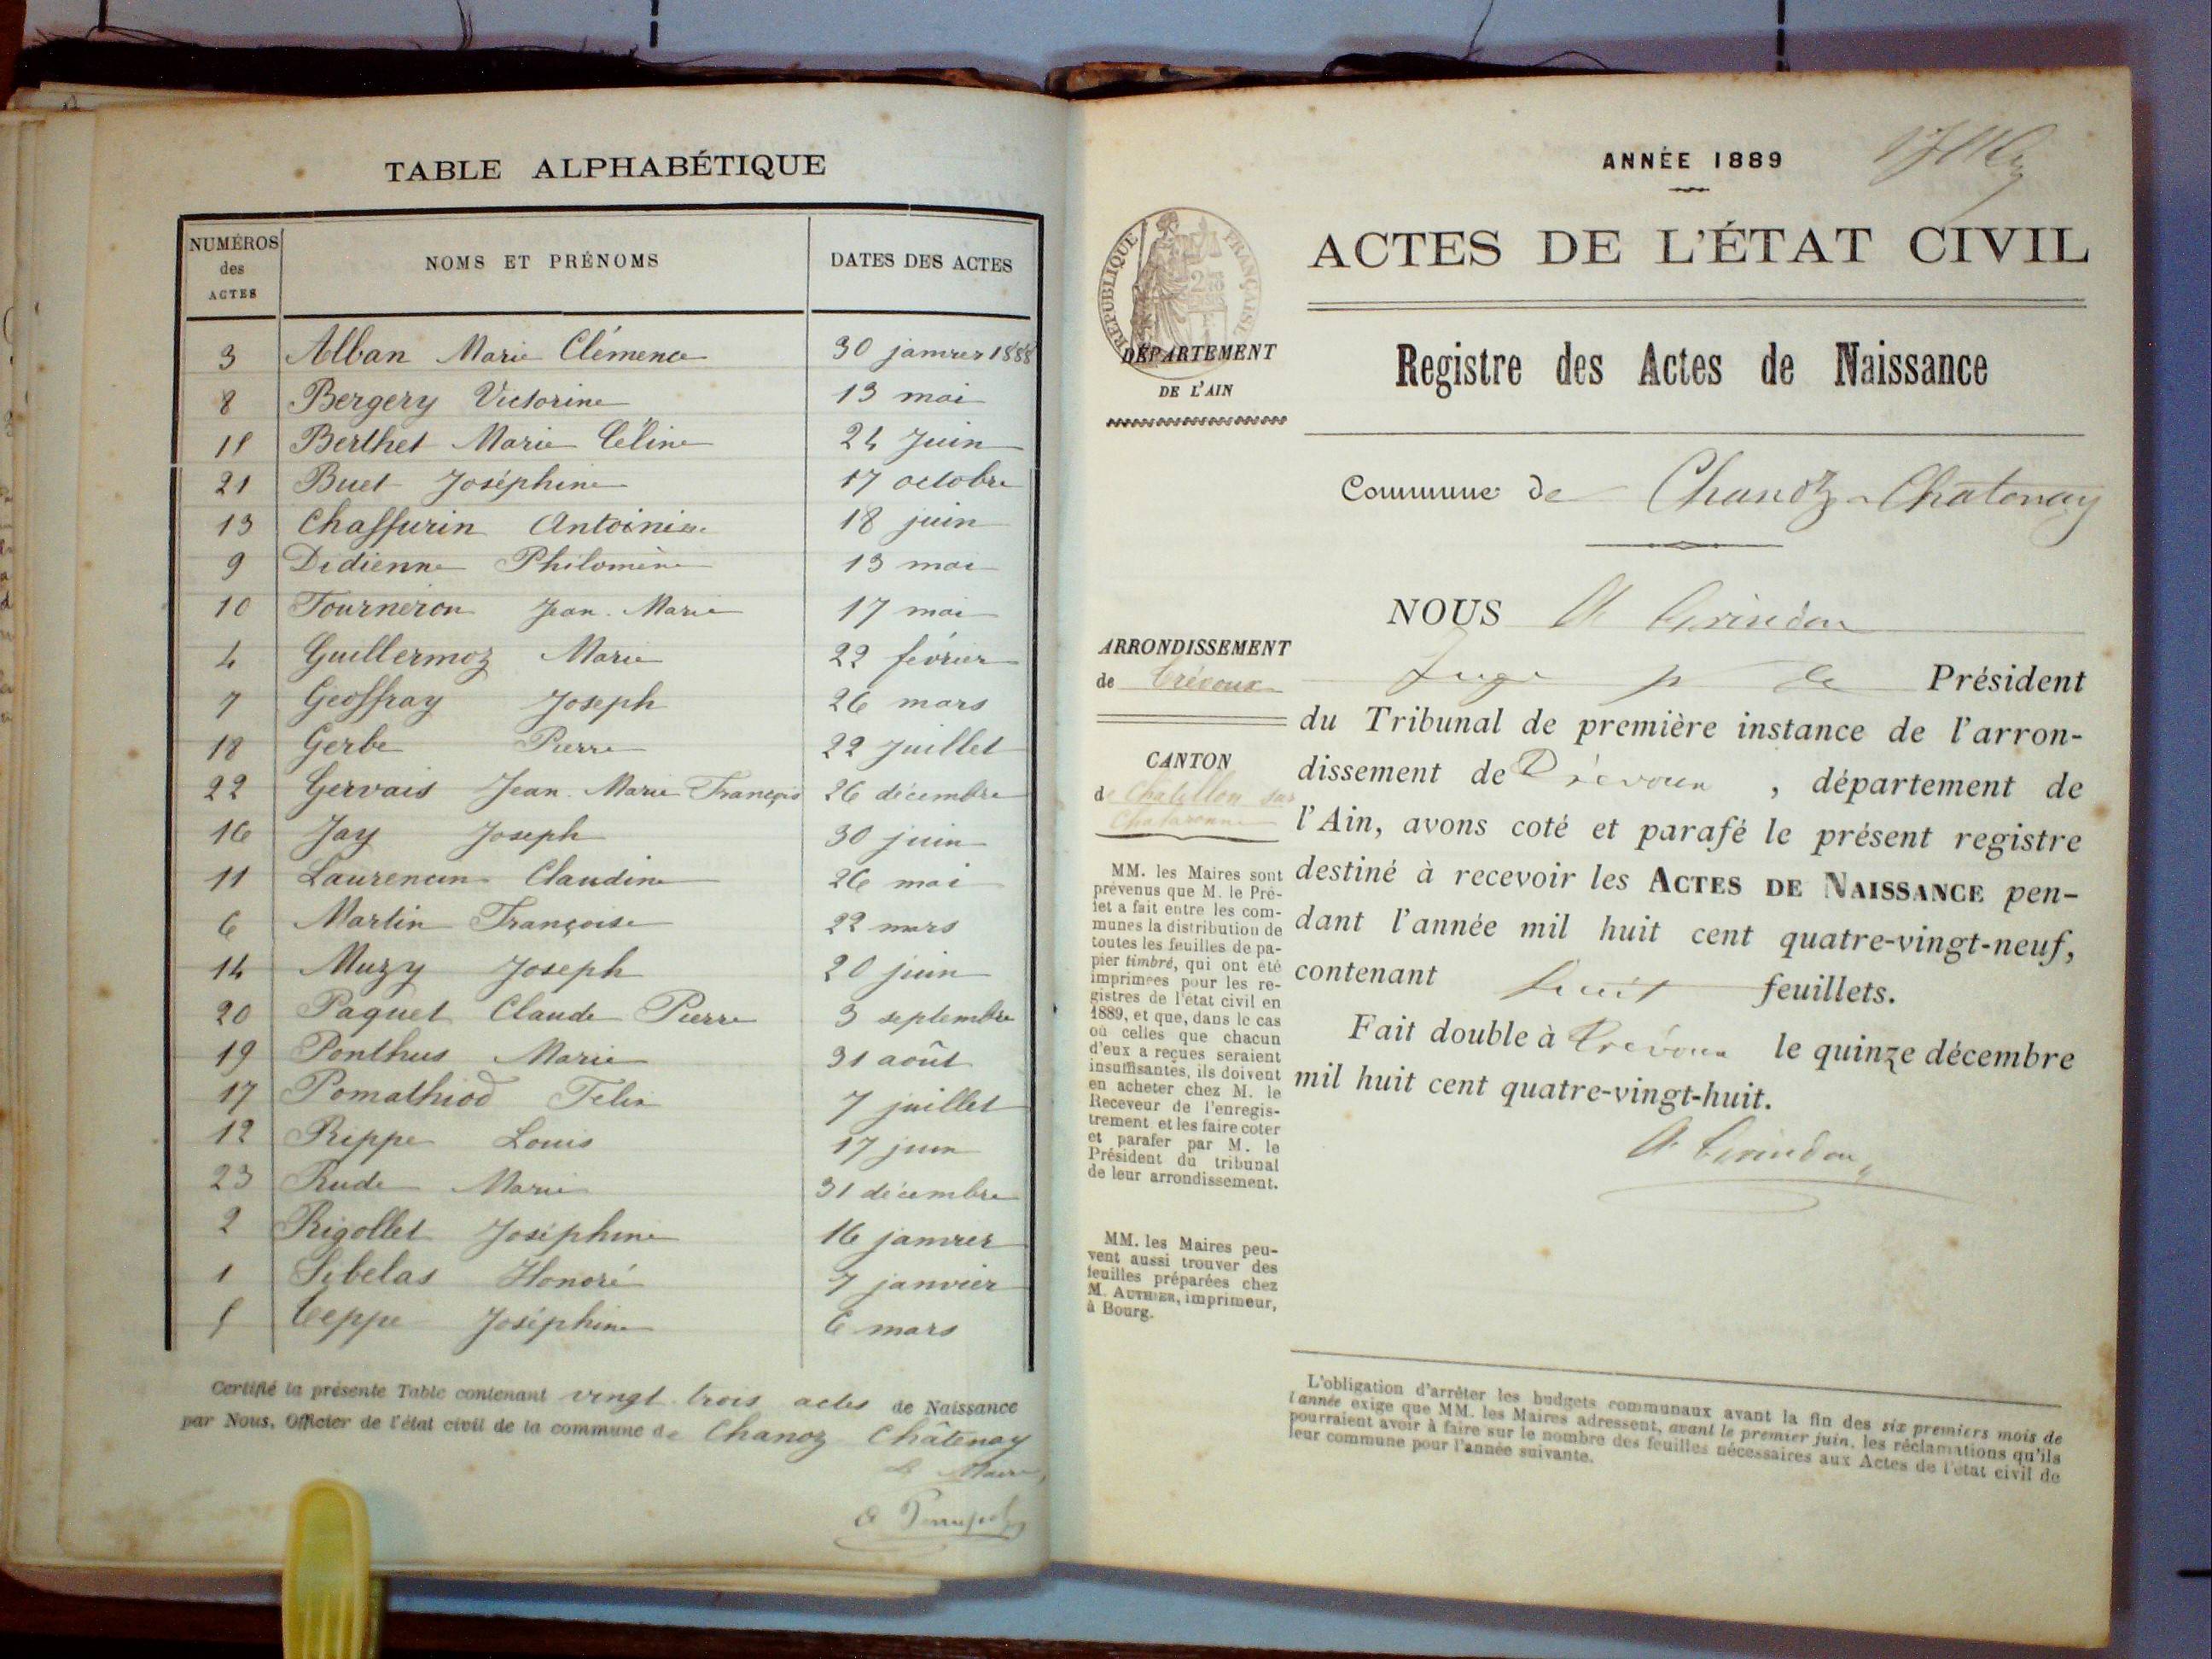 TABLE ALPHABÉTIQUE
NUMÉROS des ACTES NOMS ET PRÉNOMS DATES DES ACTES
3 Alban Marie Clémence 30 janvier 1888
8 Bergery Victorine 13 mai
15 Berthet Marie Céline 24 Juin
21 Buet Joséphine 17 octobre
13 Chaffurin Antoinie 18 juin
9 Didienne Philomène 13 mai
10 Fourneron Jean-Marie 17 mai
4 Guillermoz Marie 22 février
7 Geoffray Joseph 26 mars
18 Gerbe Pierre 22 Juillet
22 Gervais Jean-Marie François 26 décembre
16 Jay Joseph 30 juin
11 Laurencin Claudine 26 mai
6 Martin Françoise 22 mars
14 Muzy Joseph 20 juin
20 Paquet Claude Pierre 3 septembre
19 Ponthus Marie 31 août
17 Pomathiod Felix 7 juillet
12 Rippe Louis 17 juin
23 Rude Marie 31 décembre
2 Rigollet Joséphine 16 janvier
1 Sibelas Honoré 7 janvier
5 Teppe Joséphine 6 mars
Certifié la présente Table contenant vingt trois actes de Naissance
par Nous, Officier de l'état civil de la commune de Chanoz Châtenay
Le Maire,
ANNÉE 1889
RÉPUBLIQUE FRANÇAISE
ACTES DE L'ÉTAT CIVIL
DÉPARTEMENT
DE L'AIN
Registre des Actes de Naissance
Commune de Chanoz-Chatenay
ARRONDISSEMENT
de Trévoux
CANTON
de Chatillon sur
Chalaronne
MM. les Maires sont
prévenus que M. le Pré-
fet a fait entre les com-
munes la distribution de
toutes les feuilles de pa-
pier timbré, qui ont été
imprimées pour les re-
gistres de l'état civil en
1889, et que, dans le cas
où celles que chacun
d'eux a reçues seraient
insuffisantes, ils doivent
en acheter chez M. le
Receveur de l'enregis-
trement et les faire coter
et parafer par M. le
Président du tribunal
de leur arrondissement.
MM. les Maires peu-
vent aussi trouver des
feuilles préparées chez
M. AUTHIER, imprimeur,
à Bourg.
NOUS
Juge p le Président
du Tribunal de première instance de l'arron-
dissement de Trévoux, département de
l'Ain, avons coté et parafé le présent registre
destiné à recevoir les ACTES DE NAISSANCE pen-
dant l'année mil huit cent quatre-vingt-neuf,
contenant huit feuillets.
Fait double à Trévoux le quinze décembre
mil huit cent quatre-vingt-huit.
L'obligation d'arrêter les budgets communaux avant la fin des six premiers mois de
l'année exige que MM. les Maires adressent, avant le premier juin, les réclamations qu'ils
pourraient avoir à faire sur le nombre des feuilles nécessaires aux Actes de l'état civil de
leur commune pour l'année suivante.